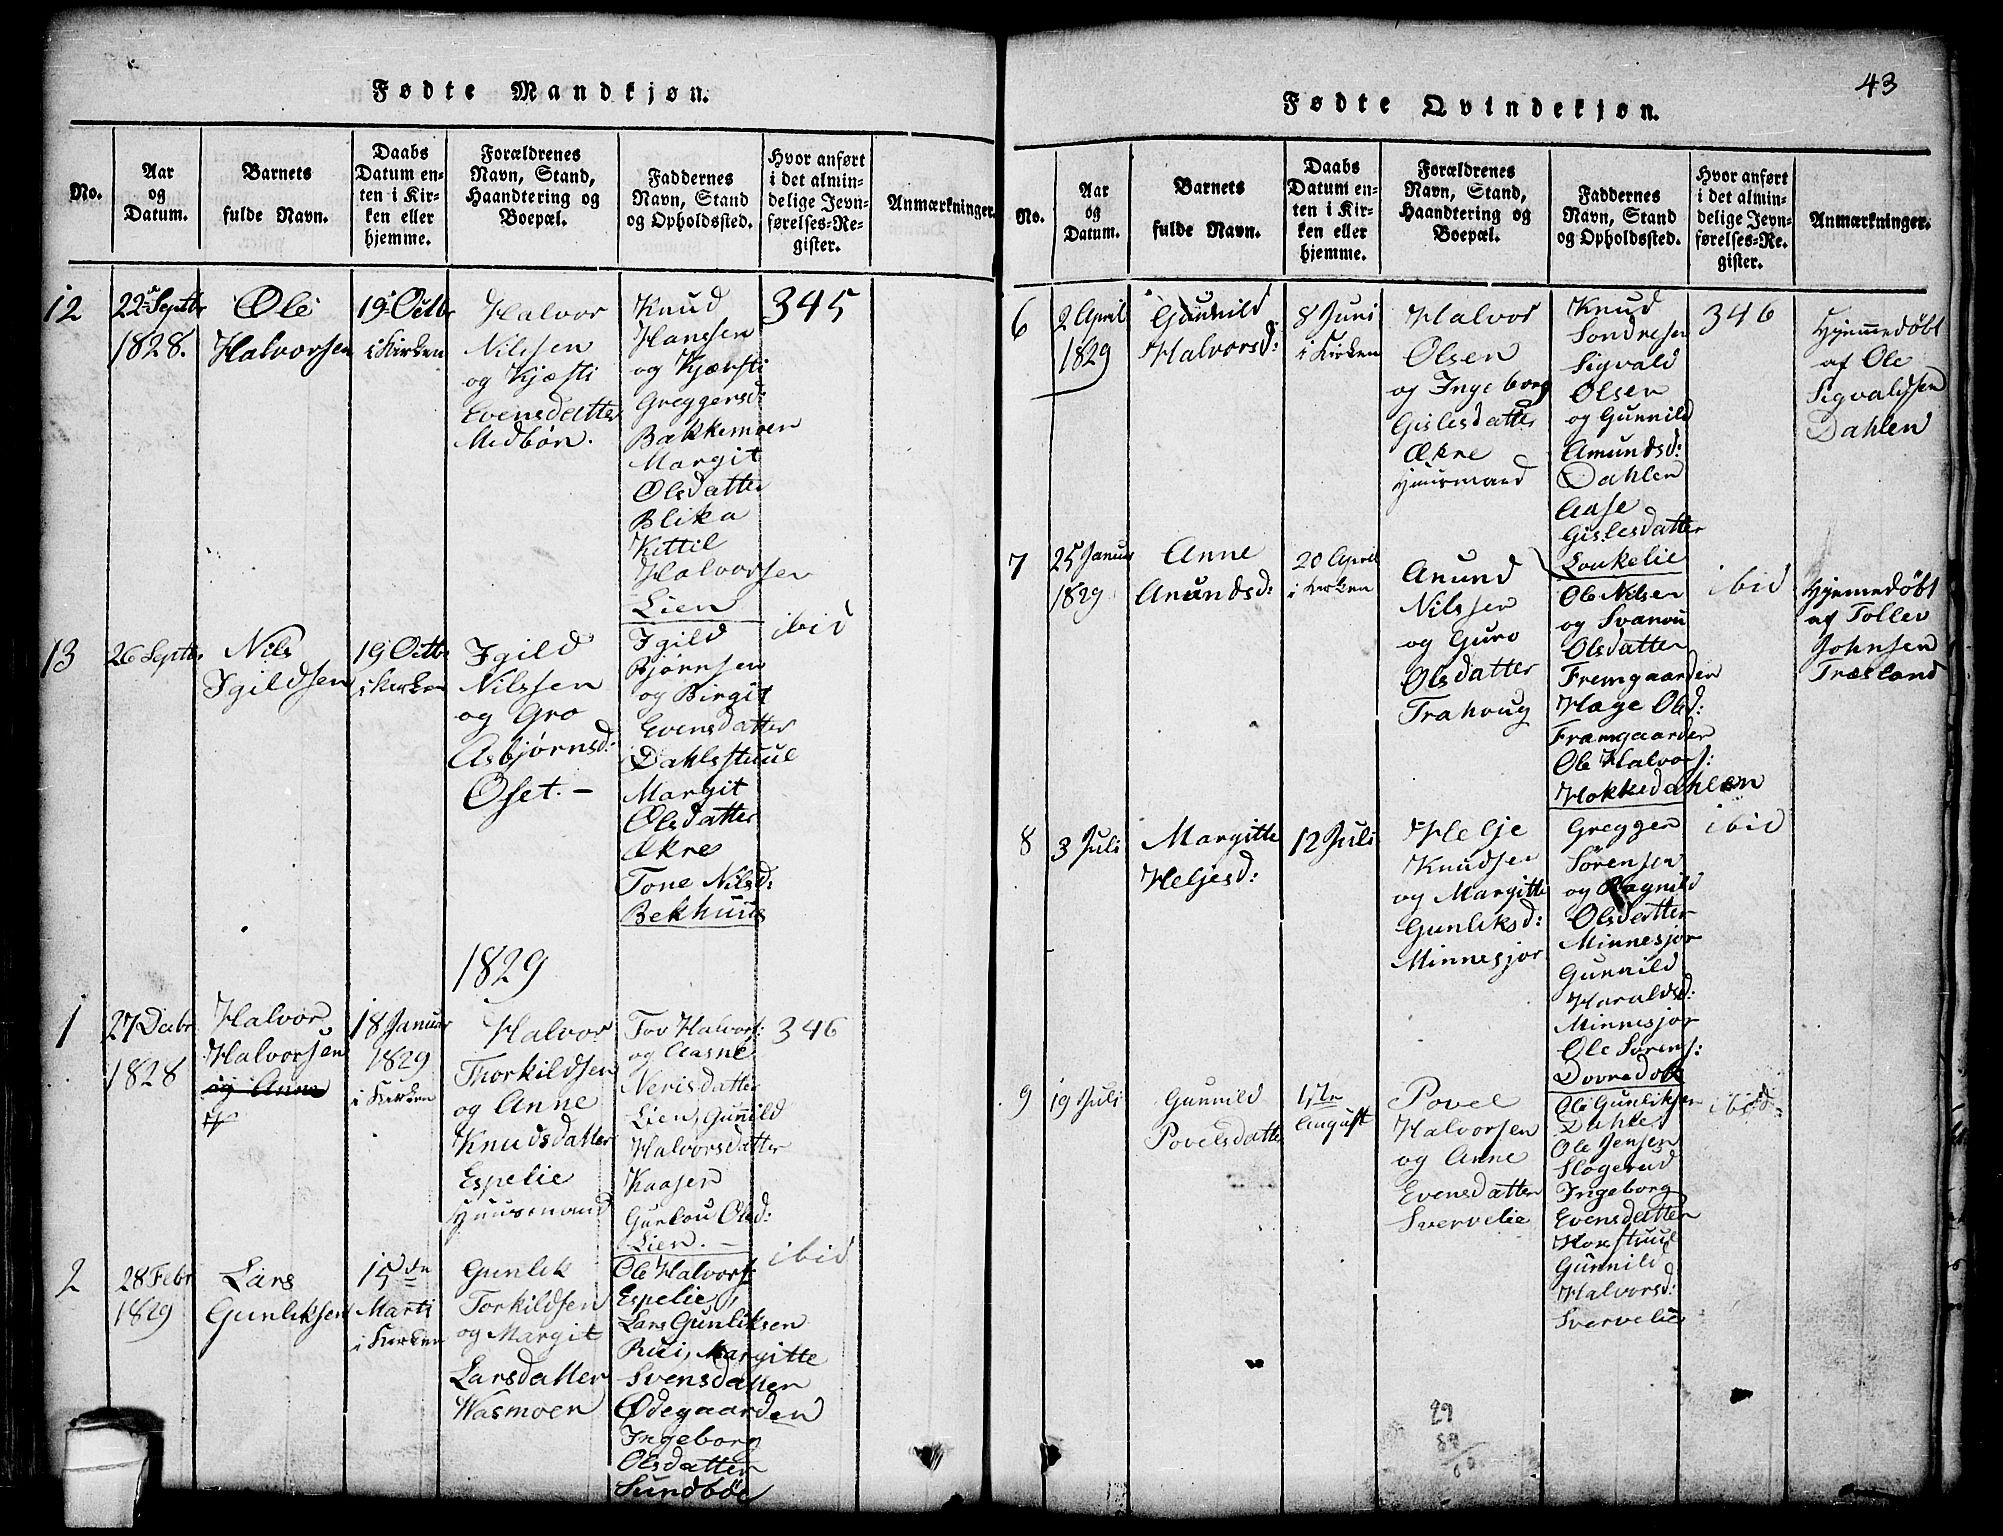 Fødte Mandkjøn.
No.
Aar
og
Datum.
Barnets
fulde Navn.
Daabs
Datum en-
ten i Kir-
ken eller
hjemme.
Forældrenes
Navn, Stand,
Haandtering og
Boepæl.
Faddernes
Navn, Stand
og Opholdssted.
Hvor anført
i det almin-
delige Jevn-
førelses-Re-
gister.
Anmærkninger.
12
22de Septbr
1828.
Ole
Halvorsen
19 Octbr
i Kirken
Halvor
Nilssen
og Kjæsti
Evensdatter
Midbøn.
Knud
Hanssen
og Kjærsti
Greggersd:
Bakkemoen
Margit
Olsdatter
Blika
Kittil
Halvorsen
Lien
345
13
26 Septbr
Nils
Igildsen
19 Octbr
i Kirken
Igild
Nilssen
og Gro
Asbjørnsd:
Oset. -
Igild
Bjørnsen
og Birgit
Evensdatter
Dahlsstuul
Margit
Olsdatter
Ækre
Tone Nilsd:
Bekhuus
ibid
1829
1
27 Decbr
1828
Halvor
Halvorsen
og Anne
18 Januar
1829
i Kirken
Halvor
Thorkildsen
og Anne
Knudsdatter
Espelie
Huusmand
Tov Halvors:
og Aasne
Nerisdatter
Lien, Gunnild
Halvorsdatter
Kaasen
Gunlou Olsd:
Lien. -
346
2
28 Febr
1829
Lars
Gunliksen
15de
Marti
i Kirken
Gunlik
Torkildsen
og Margit
Larsdatter
Wasmoen
Ole Halvors:
Espelie,
Lars Gunliksen
Buci, Margitte
Svensdatter
Ødegaarden
Ingeborg
Olsdatter
Sundbøe
ibid
43
Fødte Qvindekjøn.
No.
Aar
og
Datum.
Barnets
fulde Navn.
Daabs
Datum en-
ten i Kir-
ken eller
hjemme.
Forældrenes
Navn, Stand,
Haandtering og
Boepæl.
Faddernes
Navn, Stand
og Opholdssted.
Hvor anført
i det almin-
delige Jevn-
førelses-Re-
gister.
Anmærkninger.
6
2 April
1829
Gunnild
Halvorsd:
8 Juni
i Kirken
Halvor
Olsen
og Ingeborg
Gislesdatter
Ækre
Huusmand
Knud
Sondresen
Sigvald
Olsen
og Gunnild
Amundsd:
Dahlen
Aase
Gislesdatter
Loukelie
346
Hjemmedøbt
af Ole
Sigvaldsen
Dahlen
7
25 Januar
1829
Anne
Anundsd:
20 April
i Kirken
Anund
Nilssen
og Guro
Olsdatter
Trahoug
Ole Nilsen
og Svanou
Olsdatter
Fremgaarden
Hæge Olsd:
Framgaarden
Ole Halvors:
Hokkedahlen
ibid
Hjemmedøbt
af Tollev
Johnsen
Træsland
8
3 Juli
Margitte
Heljesd:
12 Juli
Helje
Knudsen
og Margitte
Gunliksd:
Minnesjor
Gregger
Sørensen
og Ragnild
Olsdatter
Minnesjor
Gunnild
Haraldsd:
Minnesjor
Ole Sørens:
Dovredok
ibid
9
19 Juli
Gunnild
Povelsdatter
August
Povel
Halvorsen
og Anne
Evensdatter
Svervelie
Ole Gunliksen
Dahle,
Ole Jensen
Slogerud
Ingeborg
Evensdatter
Gunnild
Halvorsd:
Svervelie
ibid